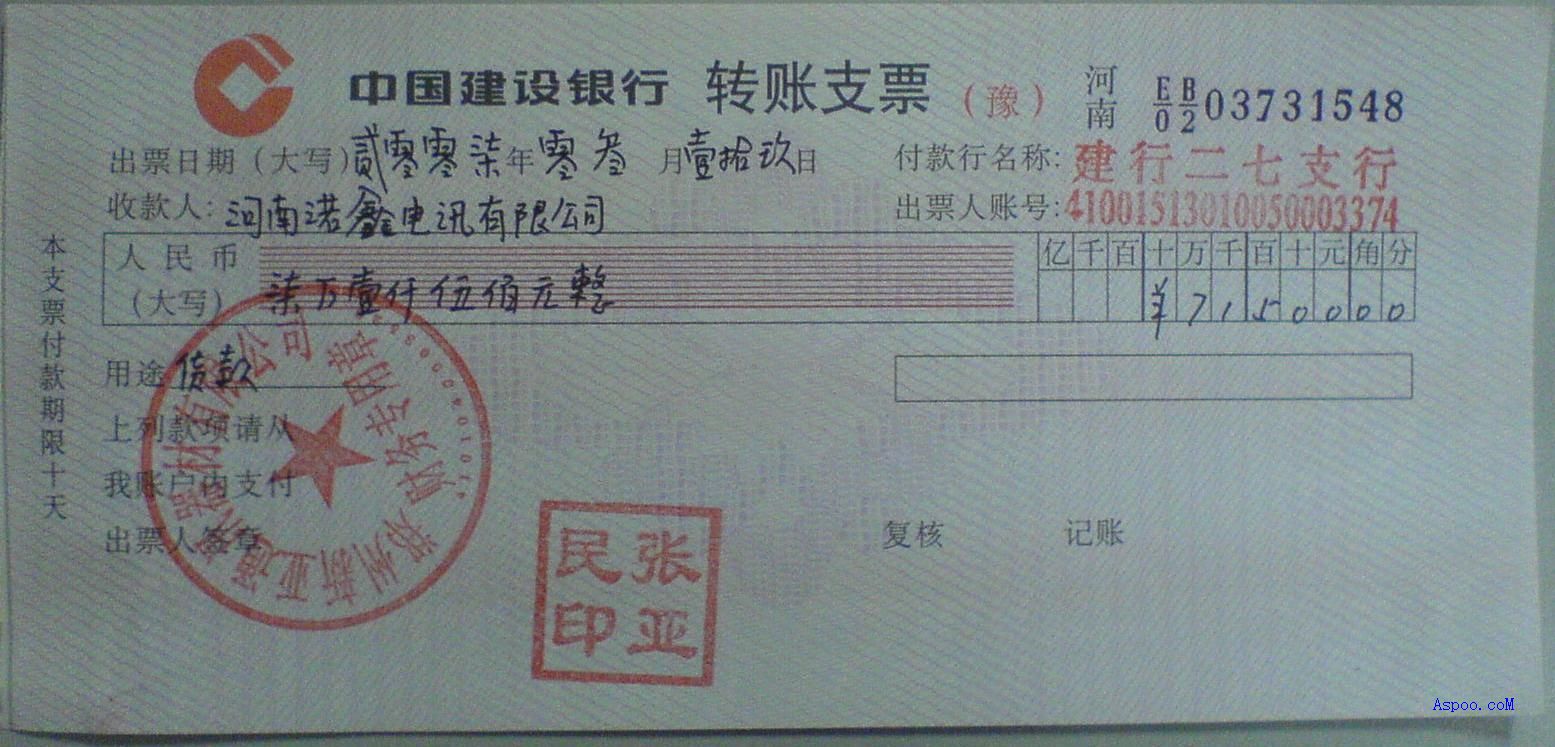 中国建设银行 转账支票 (豫) 河南 EB/02 03731548
出票日期(大写)贰零零柒年零叁月壹拾玖日 付款行名称:建行二七支行
收款人:河南诺鑫电讯有限公司 出票人账号:41001513010050003374
人民币(大写) 柒万壹仟伍佰元整 亿千百十万千百十元角分
¥7150000
用途 货款
上列款项请从
我账户内支付
出票人签章
复核 记账
本支票付款期限十天
郑州新亚通 器材有限公司
财务专用章
张亚民印
Aspoo.coM